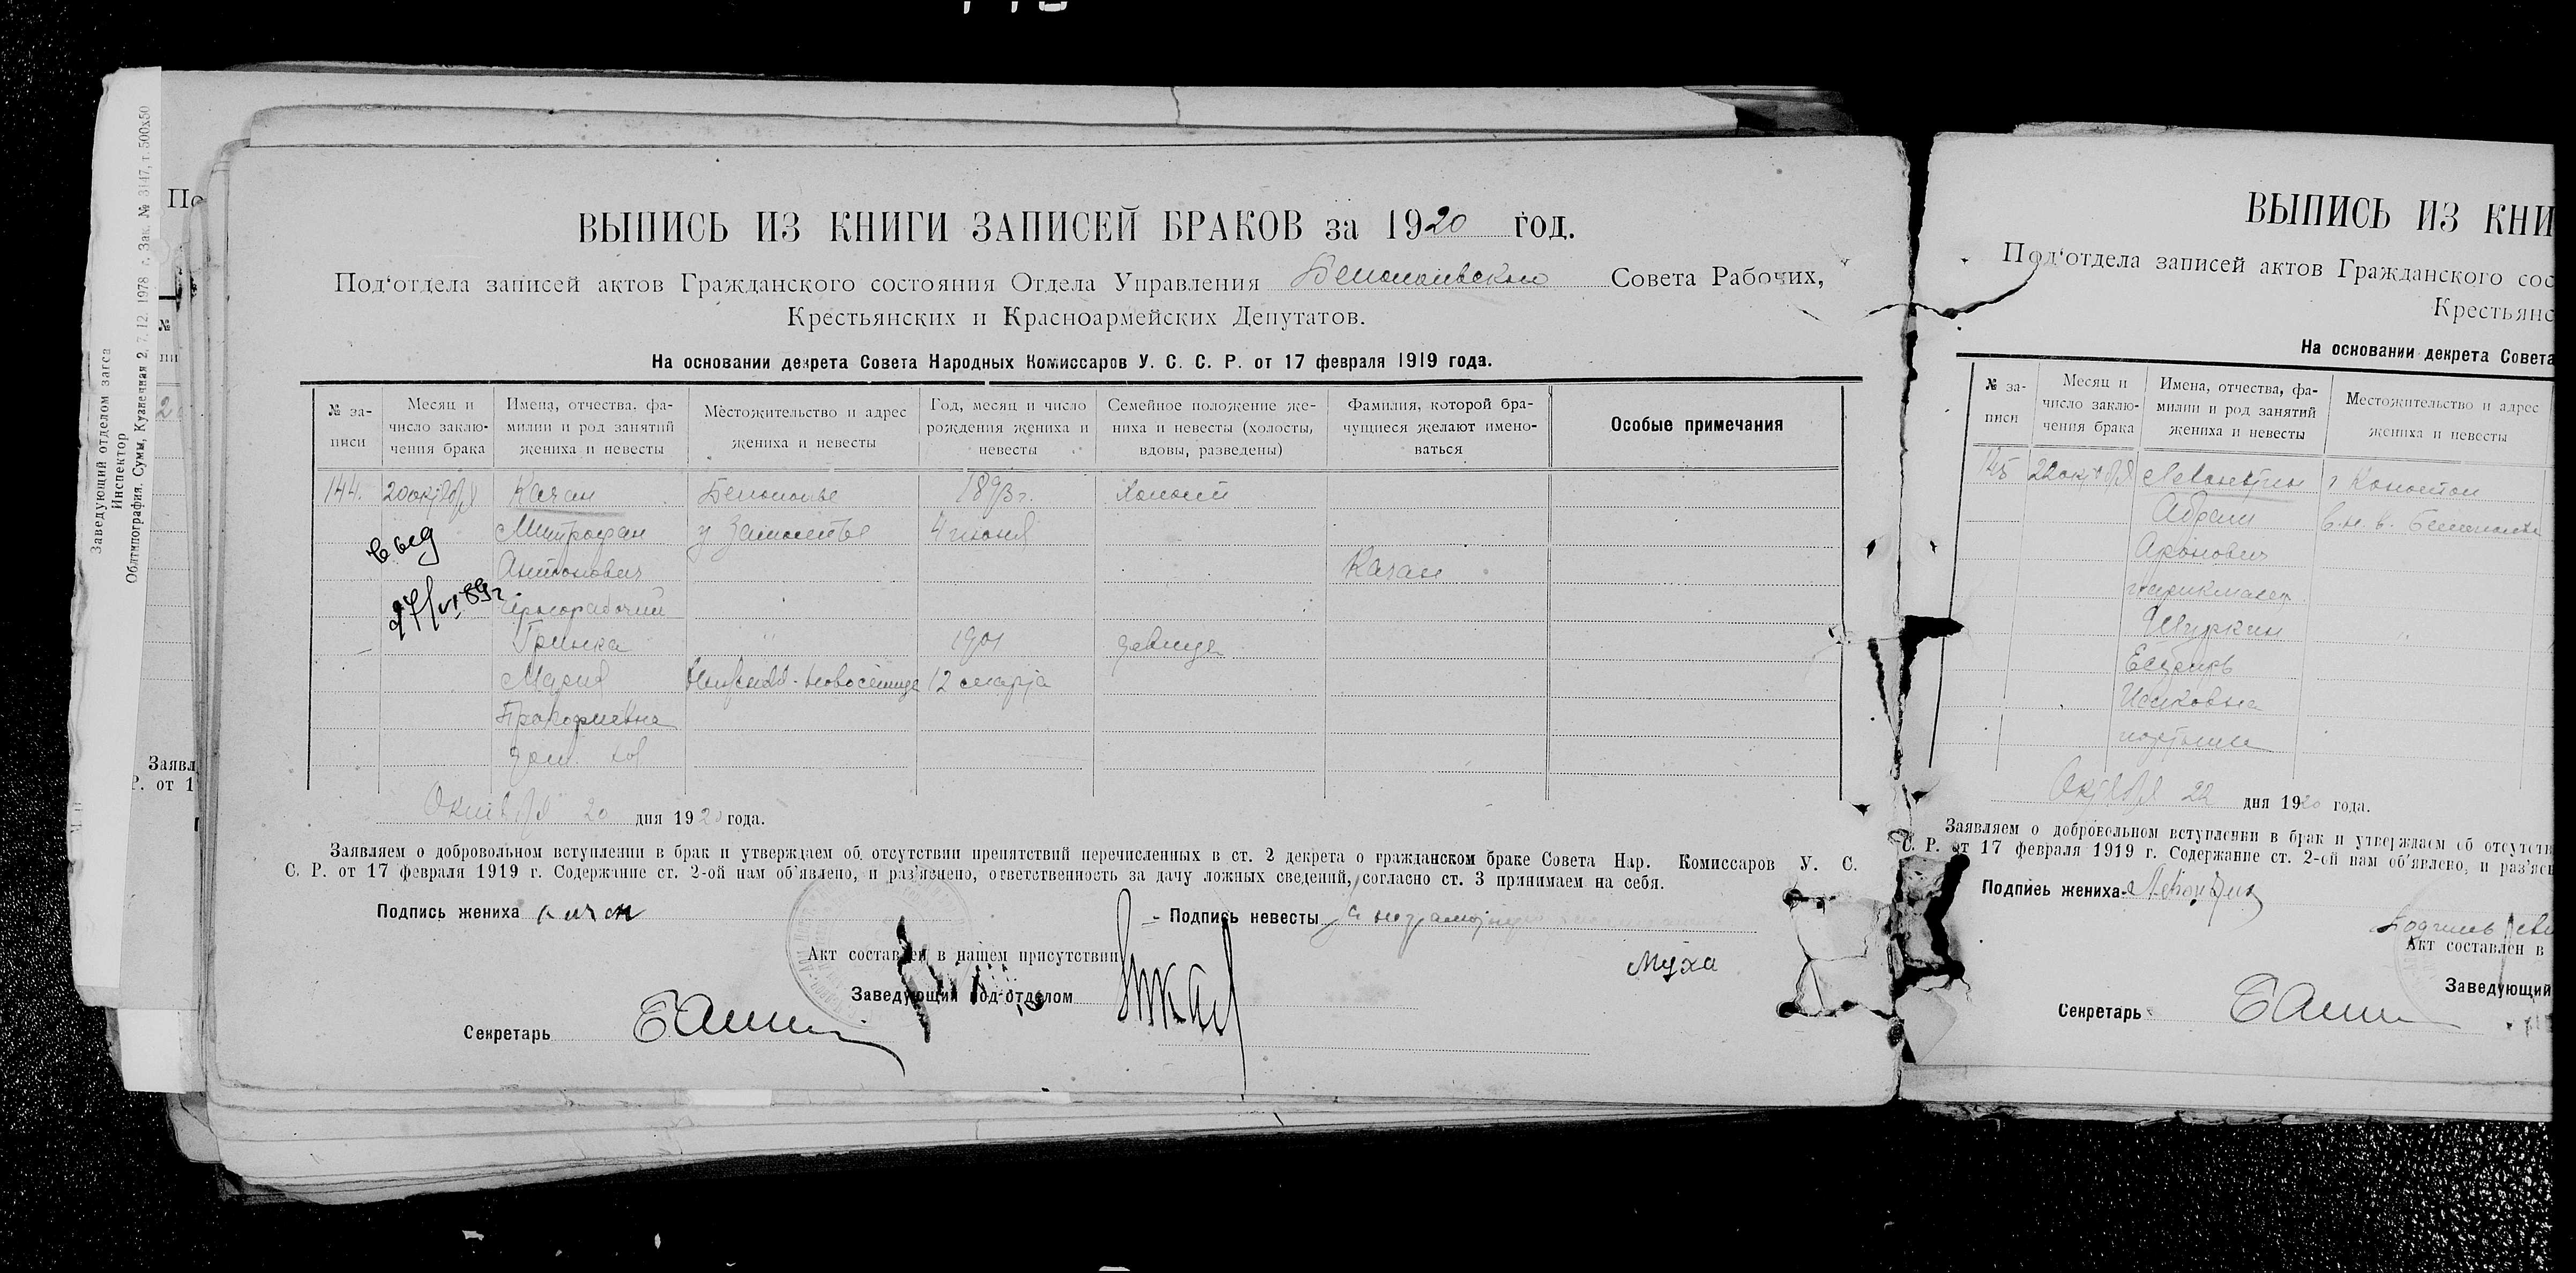 Заведующий отделом загса
Инспектор
Облтипография. Сумы, Кузнечная 2, 7. 12. 1978 г. Зак. № 3147, т. 500х50
По
№
пи
Заявл
Р. от 1
ВЫПИСЬ ИЗ КНИГИ ЗАПИСЕЙ БРАКОВ за 1920 год.
Под‘отдела записей актов Гражданского состояния Отдела Управления Белопольского Совета Рабочих,
Крестьянских и Красноармейских Депутатов.
На основании декрета Совета Народных Комиссаров У. С. С. Р. от 17 февраля 1919 года.
№ за-
писи
Месяц и
число заклю-
чения брака
Имена, отчества, фа-
милии и род занятий
жениха и невесты
Местожительство и адрес
жениха и невесты
Год, месяц и число
рождения жениха и
невесты
Семейное положение же-
ниха и невесты (холосты,
вдовы, разведены)
Фамилия, которой бра-
чущиеся желают имено-
ваться
Особые примечания
144. 20 октября Качан Белополье 1893 г. Холост
Митрофан Замостье 4 июня
Антонович Качан
чернорабочий
Гринка " 1901 девица
Мария 12 марта
Прокофиевна
дом. хоз
выд
27/VI 89 г
Октября 20 дня 1920 года.
Заявляем о добровольном вступлении в брак и утверждаем об отсутствии препятствий перечисленных в ст. 2 декрета о гражданском браке Совета Нар. Комиссаров У. С.
С. Р. от 17 февраля 1919 г. Содержание ст. 2-ой нам об‘явлено, и раз‘яснено, ответственность за дачу ложных сведений, согласно ст. 3 принимаем на себя.
Подпись жениха Качан
Подпись невесты а неграмотную
Муха
Акт составлен в нашем присутствии
Заведующий под‘отделом
Секретарь
ВЫПИСЬ ИЗ КНИ
Под‘отдела записей актов Гражданского сос
Крестьянс
На основании декрета Совета
№ за-
писи
Месяц и
число заклю-
чения брака
Имена, отчества, фа-
милии и род занятий
жениха и невесты
Местожительство и адрес
жениха и невесты
145 22 октября Левонтин г Конотоп
Абрам в. н. в. Белополье
Аронович
парикмахер
Шуркин "
Исаковна
портниха
Октября 22 дня 1920 года.
Заявляем о добровольном вступлении в брак и утверждаем об отсутств
С. Р. от 17 февраля 1919 г. Содержание ст. 2-ой нам об‘явлено, и раз‘ясн
Подпись жениха Левонтин
Подпись неве
Акт составлен в
Заведующий
Секретарь